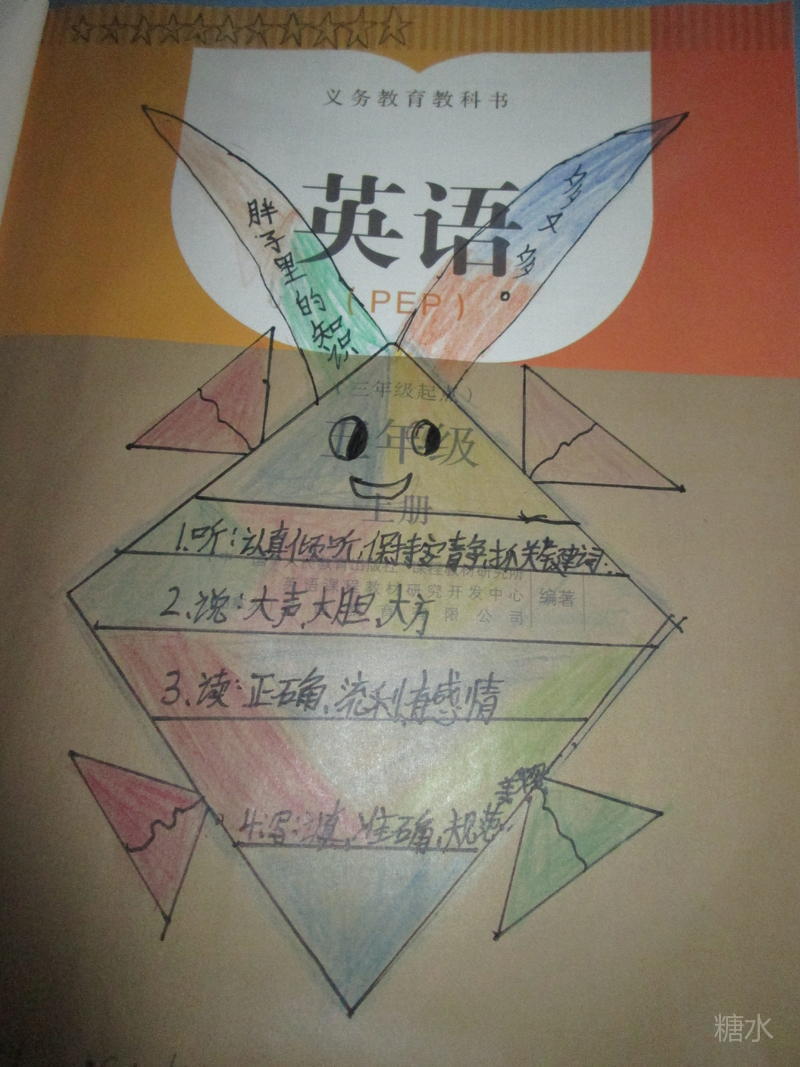 义务教育教科书
英语
(PEP)
胖子里的知识
多又多。
(三年级起点)
五年级
上册
1.听:认真倾听,保持安静,抓关键词.
编著
英语课程教材研究开发中心
2.说:大声,大胆,大方
3.读:正确、流利有感情
4.写:认真、准确、规范
美观
糖水